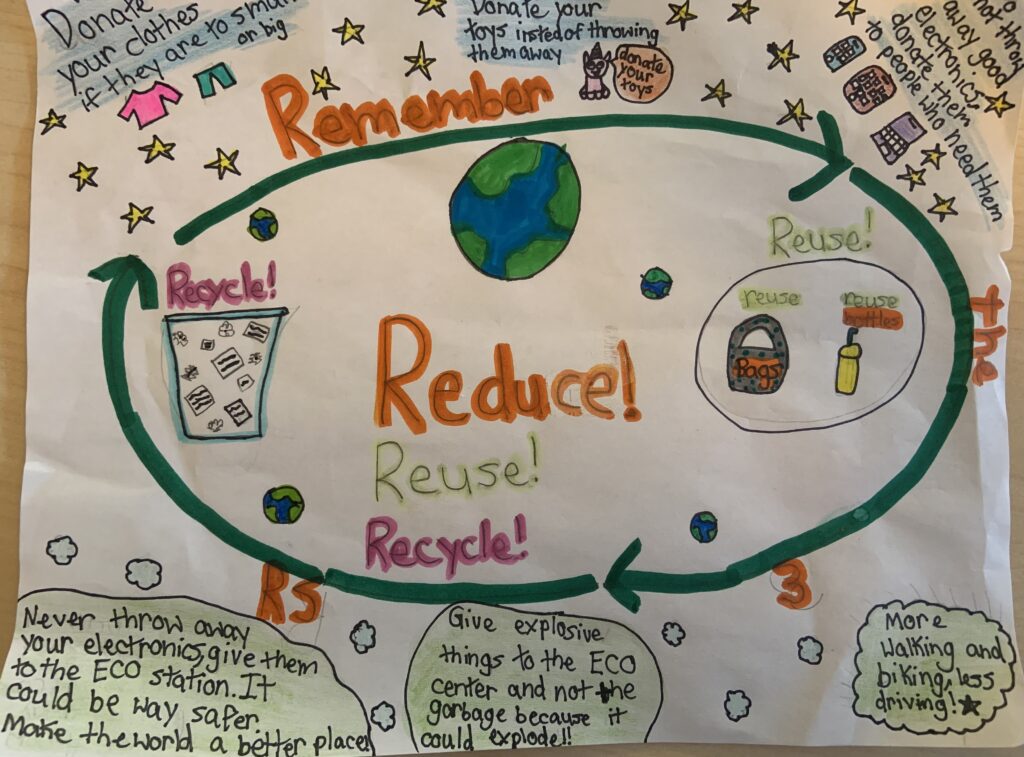 Donate
your clothes
if they are to small
or big
Donate your
toys insted of throwing
them away
donate
your
toys
to
not throw
away good
electronics,
donate them
to people who need them
Remember
the
3
Rs
Recycle!
Reuse!
reuse
Bags
reuse
bottles
Reduce!
Reuse!
Recycle!
Never throw away
your electronics, give them
to the ECO station. It
could be way safer.
Make the world a better place!
Give explosive
things to the ECO
center and not the
garbage because it
could explode!!
More
walking and
biking, less
driving!